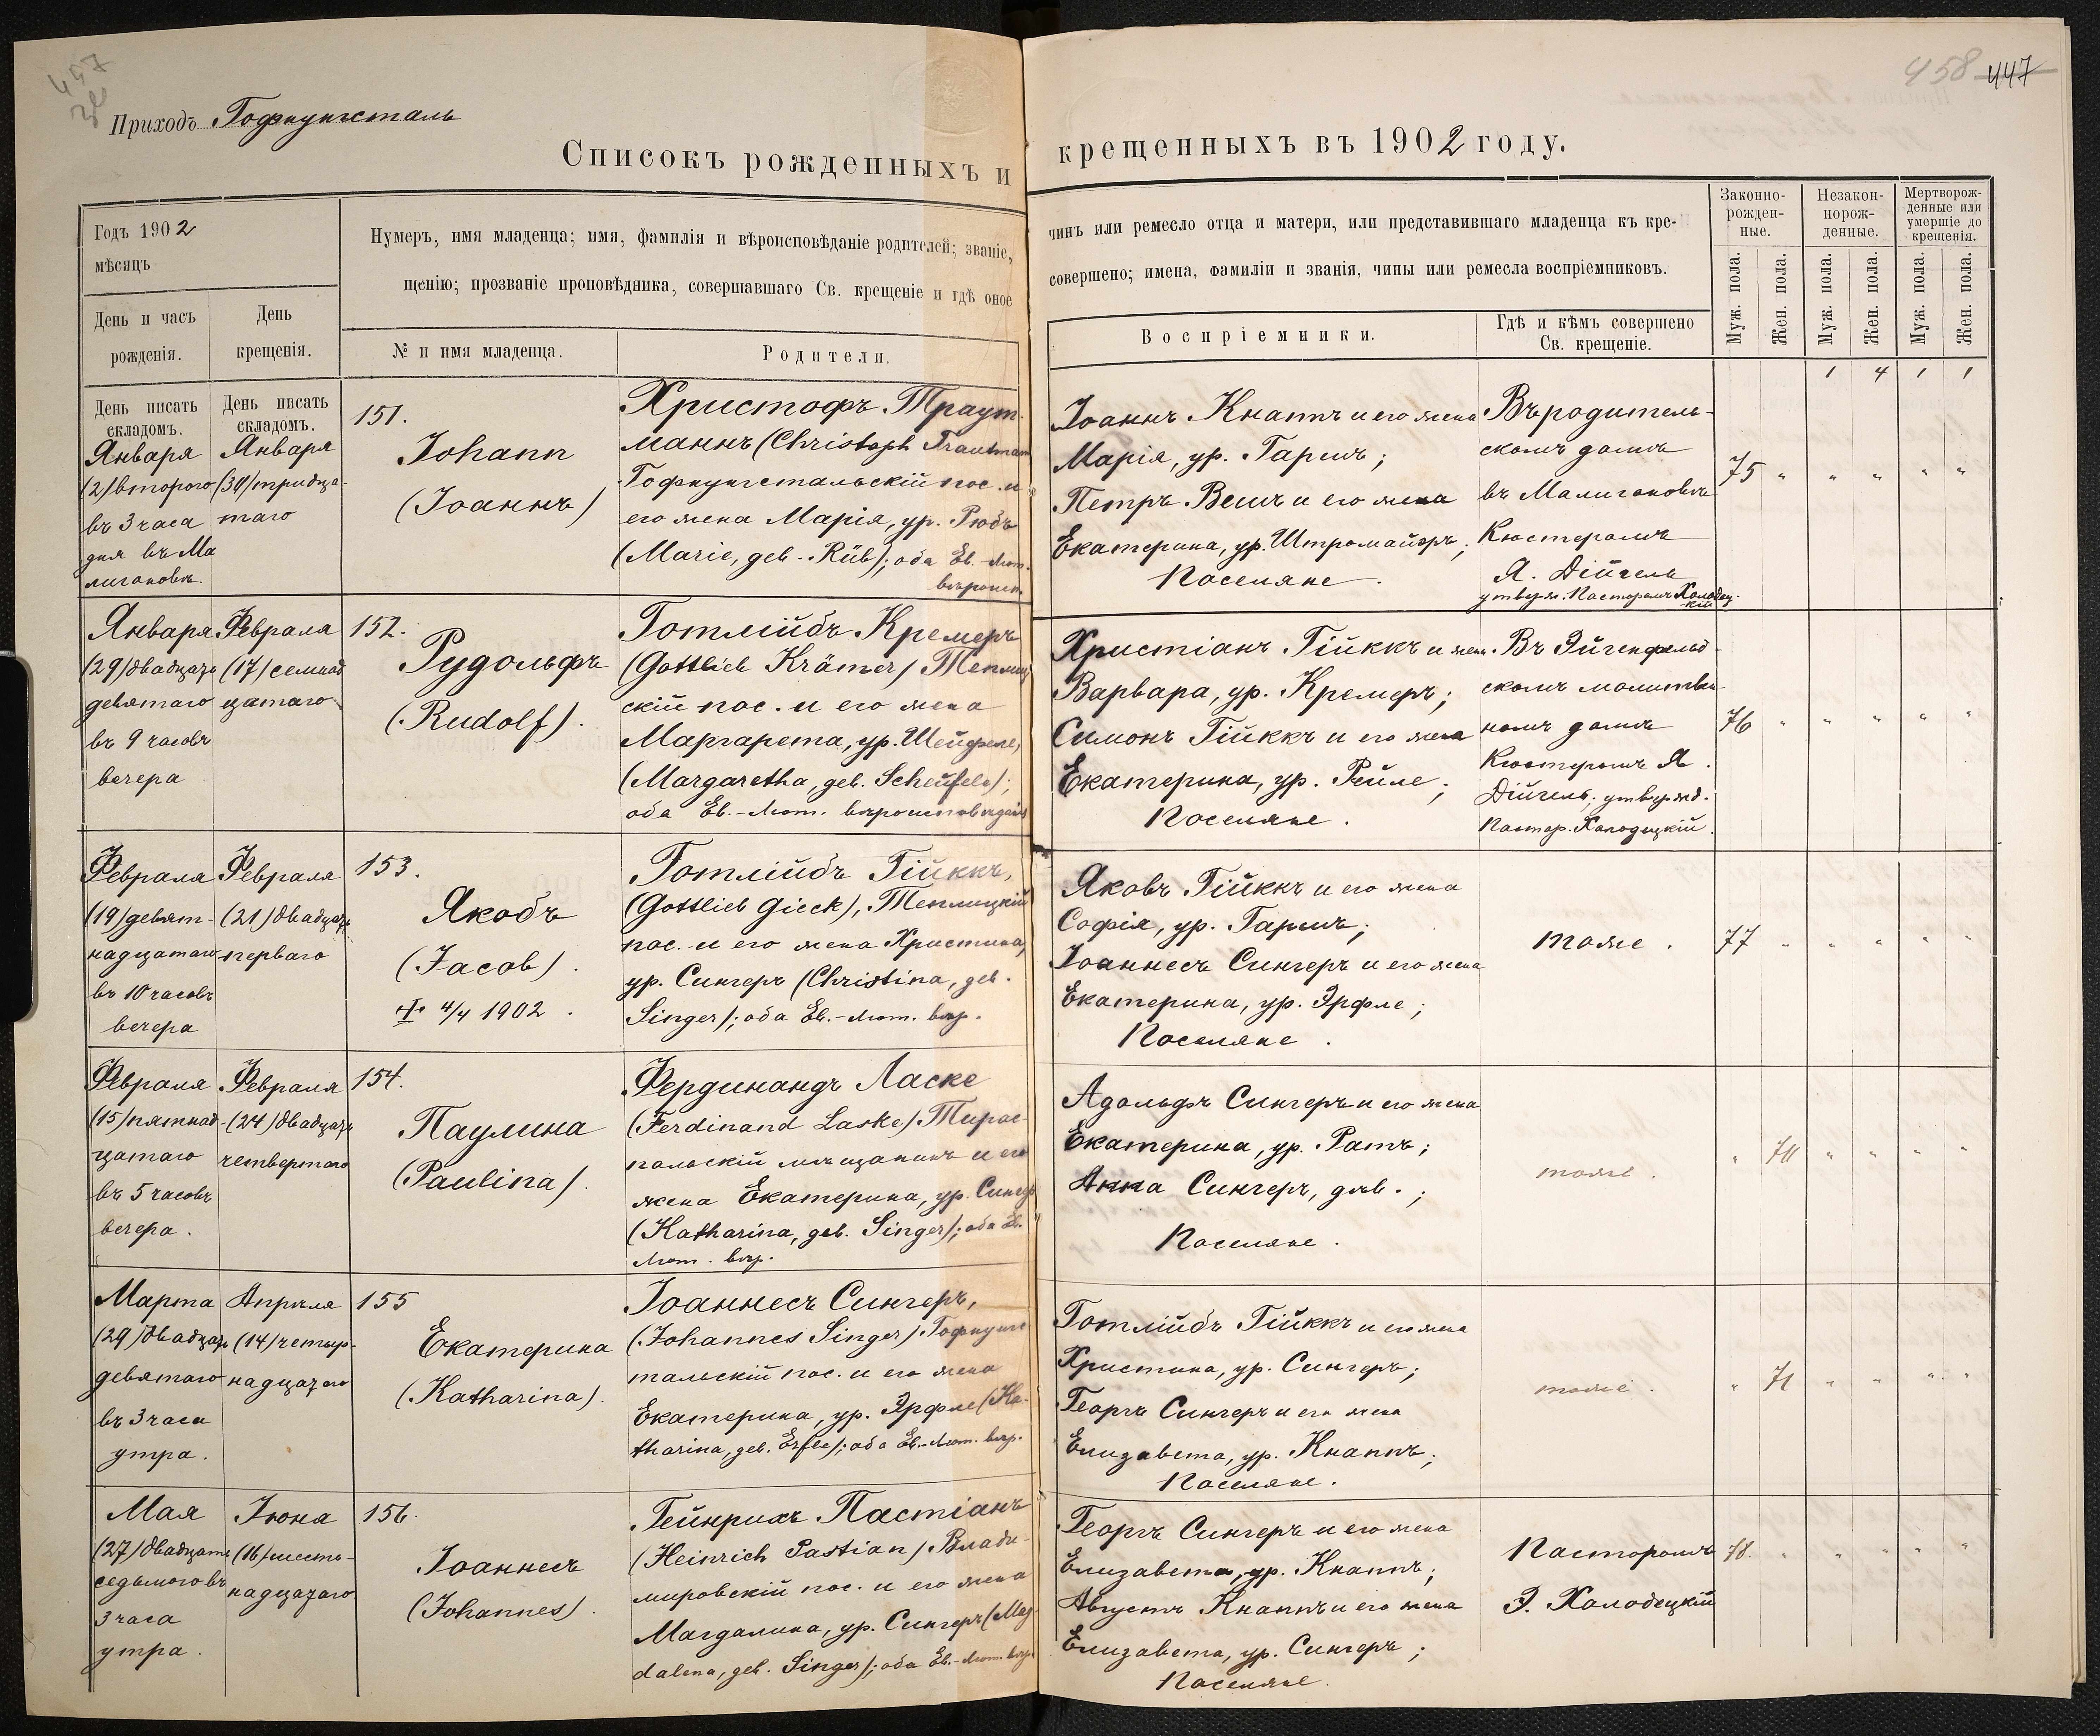 457
458 447
Приходъ Гофнунгсталь
Списокъ рожденныхъ и крещенныхъ въ 1902 году.
Годъ 1902
мѣсяцъ
День и часъ
рожденія.
День
крещенія.
Нумеръ, имя младенца; имя, фамилія и вѣроисповѣданіе родителей; званіе,
щенію; прозваніе проповѣдника, совершавшаго Св. крещеніе и гдѣ оное
№ и имя младенца.
Родители.
чинъ или ремесло отца и матери, или представившаго младенца къ кре-
совершено; имена, фамиліи и званія, чины или ремесла воспріемниковъ.
Воспріемники.
Гдѣ и кѣмъ совершено
Св. крещеніе.
Законно-
рожден-
ные.
Незакон-
норож-
денные.
Мертворож-
денные или
умершіе до
крещенія.
Муж. пола.
Жен. пола.
Муж. пола.
Жен. пола.
Муж. пола.
Жен. пола.
1 4 1 1
День писать
складомъ.
Января
(2) второго
въ 3 часа
дня въ Ма
лигановкѣ.
День писать
складомъ.
Января
(30) тридца-
таго
151.
Johann
(Іоаннъ)
Христофъ Траут-
маннъ (Christoph Trautmann
Гофнунгстальскій пос. и
его жена Марія, ур. Рюбъ
(Marie, geb. Rüb); оба Ев.-Лют.
вѣроисп.
Іоаннъ Кнаппъ и его жена
Марія, ур. Гармъ;
Петръ Вешъ и его жена
Екатерина, ур. Штромайеръ;
Поселяне.
Въ родитель-
скомъ домѣ
въ Малигановкѣ
Кюстеромъ
Я. Дійгель
утверж. Пасторомъ Холодец-
кій
75 " " " " "
Января
(29) двадцать
девятаго
въ 9 часовъ
вечера
Февраля
(17) семнад
цатаго
152.
Рудольфъ
(Rudolf).
Готлійбъ Кремеръ
(Gottlieb Krämer) Теплиц
скій пос. и его жена
Маргарета, ур. Шейфеле,
(Margaretha, geb. Scheufele);
оба Ев.-Лют. вѣроисповѣданія
Христіанъ Гійккъ и жен.
Варвара, ур. Кремеръ;
Симонъ Гійккъ и его жена
Екатерина, ур. Рейле;
Поселяне.
Въ Эйгенфельд-
скомъ молитвен-
номъ домѣ
Кюстеромъ Я.
Дійгель; утвержд.
Пастор. Холодецкій.
76 " " " " "
Февраля
(19) девят-
надцатаго
въ 10 часовъ
вечера
Февраля
(21) двадцать
перваго
153.
Якобъ
(Jacob).
4/4 1902.
Готлійбъ Гійккъ,
(Gottlieb Gieck), Теплицкій
пос. и его жена Христина,
ур. Сингеръ (Christina, geb.
Singer); оба Ев.-Лют. вѣр.
Яковъ Гійккъ и его жена
Софія, ур. Гармъ;
Іоаннесъ Сингеръ и его жена
Екатерина, ур. Эрфле;
Поселяне.
тоже.
77 " " " " "
Февраля
(15) пятнад-
цатаго
въ 5 часовъ
вечера.
Февраля
(24) двадцать
четвертаго
154.
Паулина
(Paulina).
Фердинандъ Ласке
(Ferdinand Laske) Тирас-
польскій мѣщанинъ и его
жена Екатерина, ур. Сингеръ
(Katharina, geb. Singer); оба Ев.
Лют. вѣр.
Адольфъ Сингеръ и его жена
Екатерина, ур. Ратъ;
Анна Сингеръ, дѣв.;
Поселяне.
тоже.
" 70 " " " "
Марта
(29) двадцать
девятаго
въ 3 часа
утра.
Апрѣля
(14) четыр-
надцатаго
155
Екатерина
(Katharina).
Іоаннесъ Сингеръ,
(Johannes Singer) Гофнунгс
тальскій пос. и его жена
Екатерина, ур. Эрфле (Ka-
tharina, geb. Erfle); оба Ев.-Лют. вѣр.
Готлійбъ Гійккъ и его жена
Христина, ур. Сингеръ;
Георгъ Сингеръ и его жена
Елизавета, ур. Кнаппъ;
Поселяне.
тоже.
" 71 " " " "
Мая
(27) двадцать
седьмого въ
3 часа
утра.
Іюня
(16) шест-
надцатаго
156.
Іоаннесъ
(Johannes).
Гейнрихъ Пастіанъ
(Heinrich Pastian) Влади-
мировскій пос. и его жена
Магдалина, ур. Сингеръ (Mag-
dalena, geb. Singer); оба Ев.-Лют. вѣр.
Георгъ Сингеръ и его жена
Елизавета, ур. Кнаппъ;
Августъ Кнаппъ и его жена
Елизавета, ур. Сингеръ;
Поселяне.
Пасторомъ
Э. Холодецкій
78. " " " " "